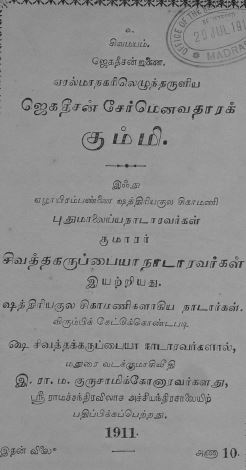 உ
சிவமயம்.
ஜெகதீசன் துணை.
ஏரல்மாநகரிலெழுந்தருளிய
ஜெகதீசன் சேர்மெனவதாரக்
கும்மி.
இஃது
ஏழாயிரம்பண்ணை க்ஷத்திரியகுல சிகாமணி
புதுமாலைய்யநாடாரவர்கள்
குமாரர்
சிவத்தகருப்பையாநாடாரவர்கள்
இயற்றியது.
க்ஷத்திரியகுல சிகாமணிகளாகிய நாடார்கள்.
விரும்பிக் கேட்டுக்கொண்டபடி
ஷை சிவத்தக்கருப்பையா நாடாரவர்களால்,
மதுரை வடக்குமாசிவீதி
இ. ரா. ம. குருசாமிக்கோனாரவர்களது,
ஸ்ரீ ராமச்சந்திரவிலாச அச்சியந்திரசாலையிற்
பதிப்பிக்கப்பெற்றது.
1911.
இதன் விலை அணா 10.
OFFICE OF THE
20 JUL 191
MADRAS